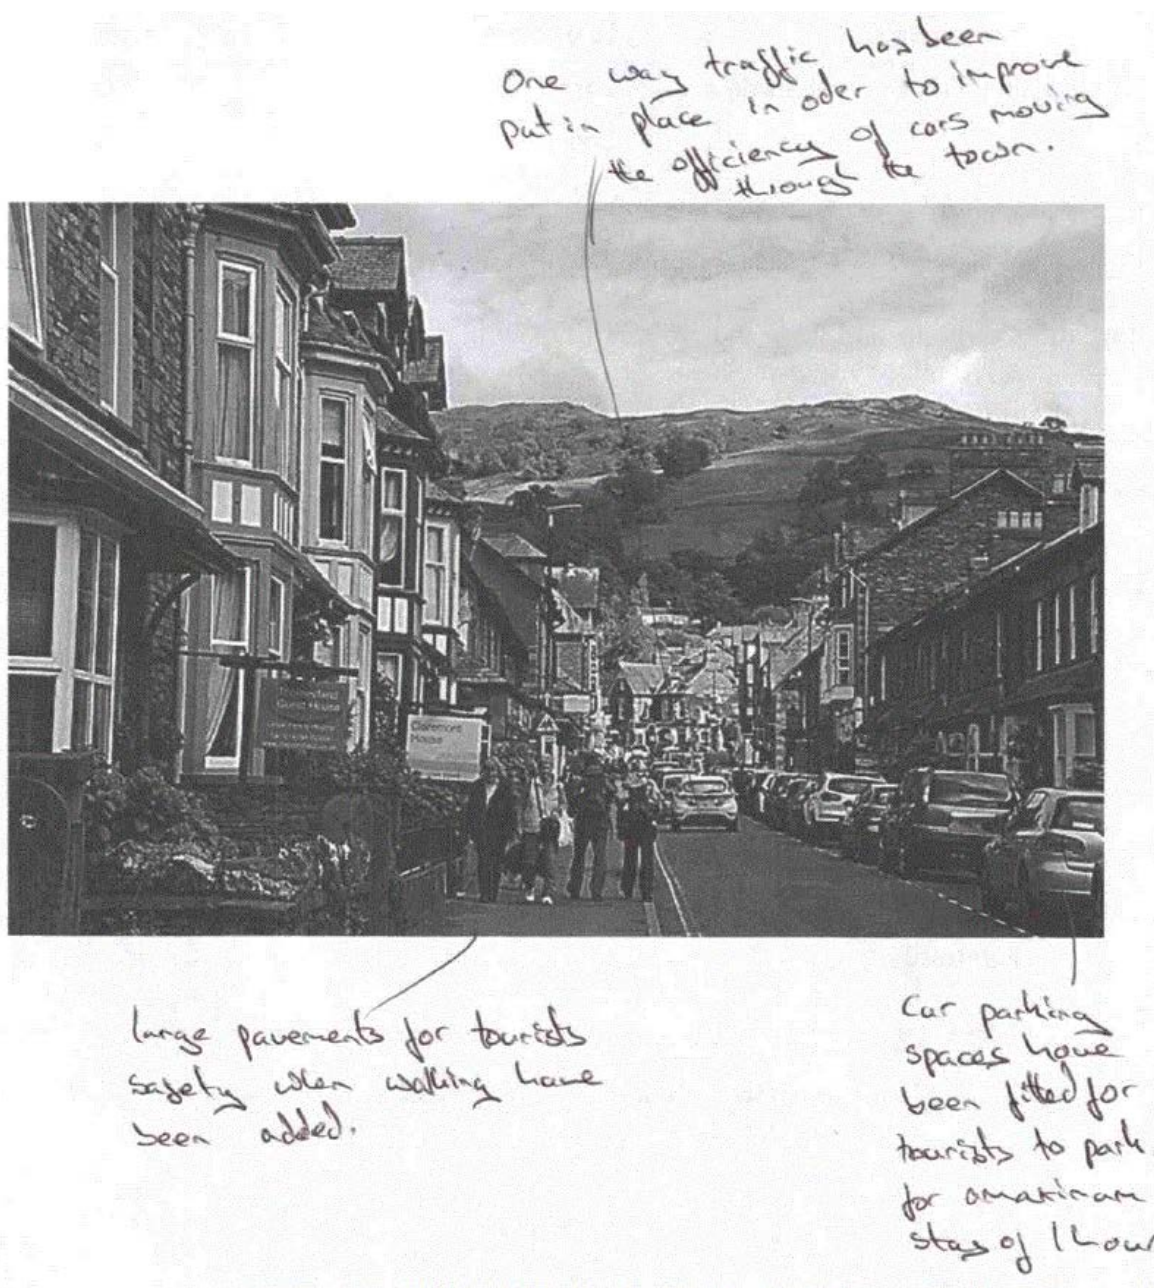 One way traffic has been
put in place in oder to improve
the efficiency of cars moving
through the town.
Guest House
Claremont
House
large pavements for tourists
safety when walking have
been added.
Car parking
spaces have
been fitted for
tourists to park
for a maximum
stay of 1 hour